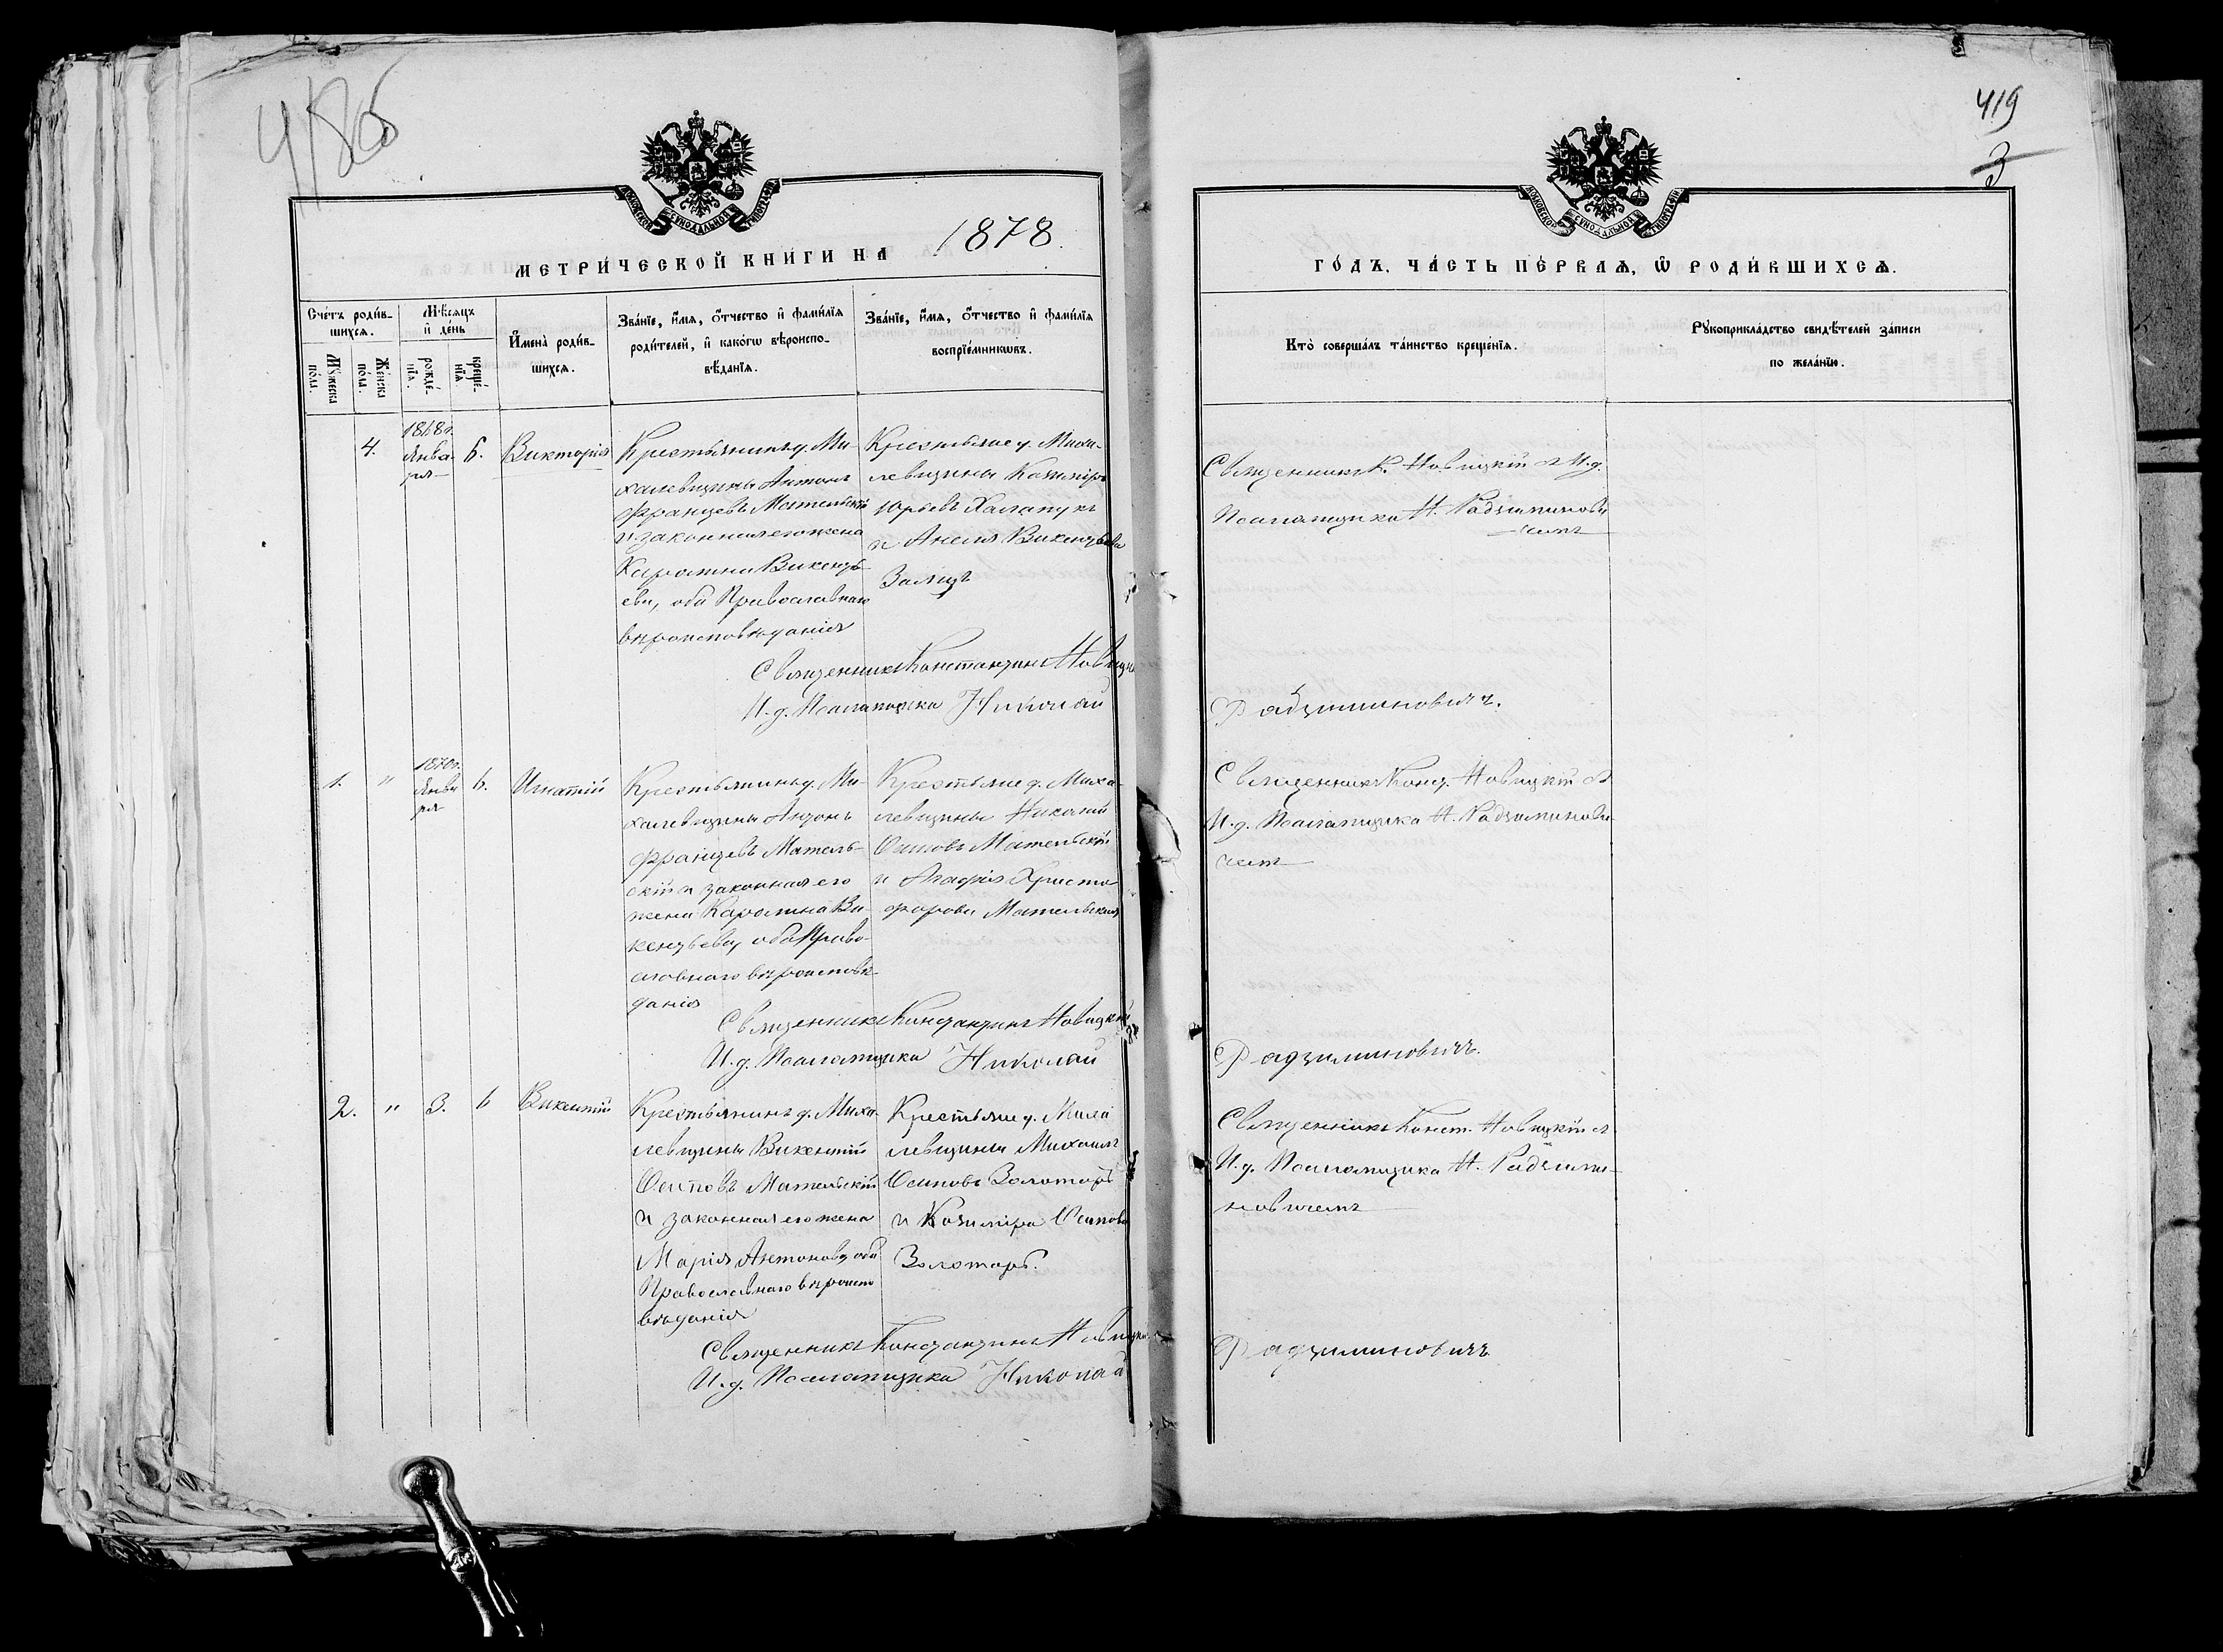 418об
419
3
МОСКОВСКОЙ СѴНОДАЛЬНОЙ ТИПОГРАФІИ
МОСКОВСКОЙ СѴНОДАЛЬНОЙ ТИПОГРАФІИ
МЕТРИ́ЧЕСКОЙ КНИ́ГИ НА 1878.
ГО́ДЪ, ЧА́СТЬ ПЕ́РВАЯ, Ѡ РОДИ́ВШИХСЯ.
Сче́тъ роди́в-
шихся.
Мꙋ́жеска
по́ла.
Же́нска
по́ла.
Мѣ́сяцъ
и҆ де́нь
рожде́-
нїѧ.
креще́-
нїѧ
И҆мена̀ роди́в-
шихся.
Зва́нїе, и҆́мя, ѻ҆́тчество и҆ фами́лїя
роди́телей, и҆ како́гѡ вѣроиспо-
вѣ́данїя.
Зва́нїе, и҆́мя, ѻ҆́тчество и҆ фами́лїя
воспрїе́мникѡвъ.
Кто̀ соверша́лъ та́инство креще́нїя.
Рꙋкоприкла́дство свидѣ́телей за́писи
по жела́нїю.
4.
1868г.
Янва-
ря
6.
Викторія
Крестьянинъ д. Ми-
халевщины Антонъ
Францевъ Мательскій
и законная его жена
Каролина Викенть-
ева, оба Православнаго
вѣроисповѣданія
Крестьяне д. Миха-
левщины Казиміръ
Юрьевъ Халапукъ
и Анеля Викентьева
Священникъ К. Новицкій съ И.д.
Псаломщика Н. Радзиминови-
чемъ
Священникъ Константинъ Новицкій
И.д. Псаломщика Николай
Радзиминовичъ.
1.
"
1870г.
Янва
ря
6.
Игнатій
Крестьянинъ д. Ми-
халевщины Антонъ
Францевъ Матель-
скій и законная его
жена Каролина Ви-
кентьева, оба Право-
славнаго вѣроисповѣ-
данія
Крестьяне д. Миха-
левщины Николай
Осиповъ Мательскій
и Агафія Христо-
форова Мательская
Священникъ Конст. Новицкій съ
И.д. Псаломщика Н. Радзиминови-
чемъ
Священникъ Константинъ Новицкій
И.д. Псаломщика Николай
Радзиминовичъ.
2.
"
3.
6
Викентій
Крестьянинъ д. Миха-
левщины Викентій
Осиповъ Мательскій
и законная его жена
Марія Антонова, оба
Православнаго вѣроиспо
вѣданія
Крестьяне д. Миха
левщины Михаилъ
Осиповъ Золотарь
и Казиміра Осипова
Золотарь.
Священникъ Конст. Новицкій съ
И.д. Псаломщика Н. Радзими-
новичемъ
Священникъ Константинъ Новицкій
И.д. Псаломщика Николай
Радзиминовичъ